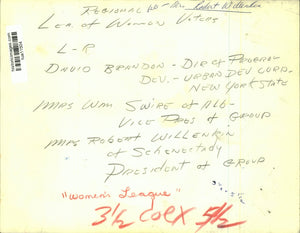 REGIONAL
Robert Willenkin
Lea. of Women Voters
L-R
DAVID BRANDON - DIR of PROGRAM
DEV. - URBAN DEV CORP.
NEW YORK STATE
MRS WM SWIRE of ALB-
VICE PRES of GROUP
MRS ROBERT WILLENKIN
of Schenectady
PRESIDENT of GROUP
"Women's League"
3 1/2 COLX 5 1/2